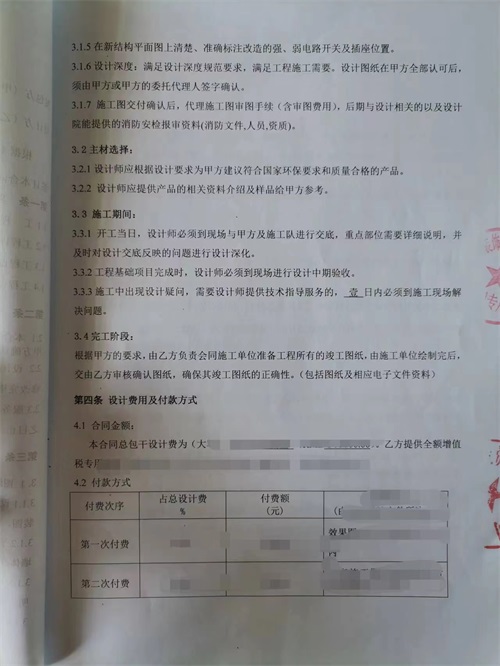 3.1.5 在新结构平面图上清楚、准确标注改造的强、弱电路开关及插座位置。
3.1.6 设计深度：满足设计深度规范要求，满足工程施工需要。设计图纸在甲方全部认可后，
须由甲方或甲方的委托代理人签字确认。
3.1.7 施工图交付确认后，代理施工图审图手续（含审图费用），后期与设计相关的以及设计
院能提供的消防安检报审资料(消防文件,人员,资质)。
3.2 主材选择：
3.2.1 设计师应根据设计要求为甲方建议符合国家环保要求和质量合格的产品。
3.2.2 设计师应提供产品的相关资料介绍及样品给甲方参考。
3.3 施工期间：
3.3.1 开工当日，设计师必须到现场与甲方及施工队进行交底，重点部位需要详细说明，并
及时对设计交底反映的问题进行设计深化。
3.3.2 工程基础项目完成时，设计师必须到现场进行设计中期验收。
3.3.3 施工中出现设计疑问，需要设计师提供技术指导服务的，壹日内必须到施工现场解
决问题。
3.4 完工阶段：
根据甲方的要求，由乙方负责会同施工单位准备工程所有的竣工图纸，由施工单位绘制完后，
交由乙方审核确认图纸，确保其竣工图纸的正确性。（包括图纸及相应电子文件资料）
第四条 设计费用及付款方式
4.1 合同金额：
本合同总包干设计费为（大 乙方提供全额增值
税专用
4.2 付款方式
付费次序 占总设计费% 付费额（元）
第一次付费 效果图
第二次付费